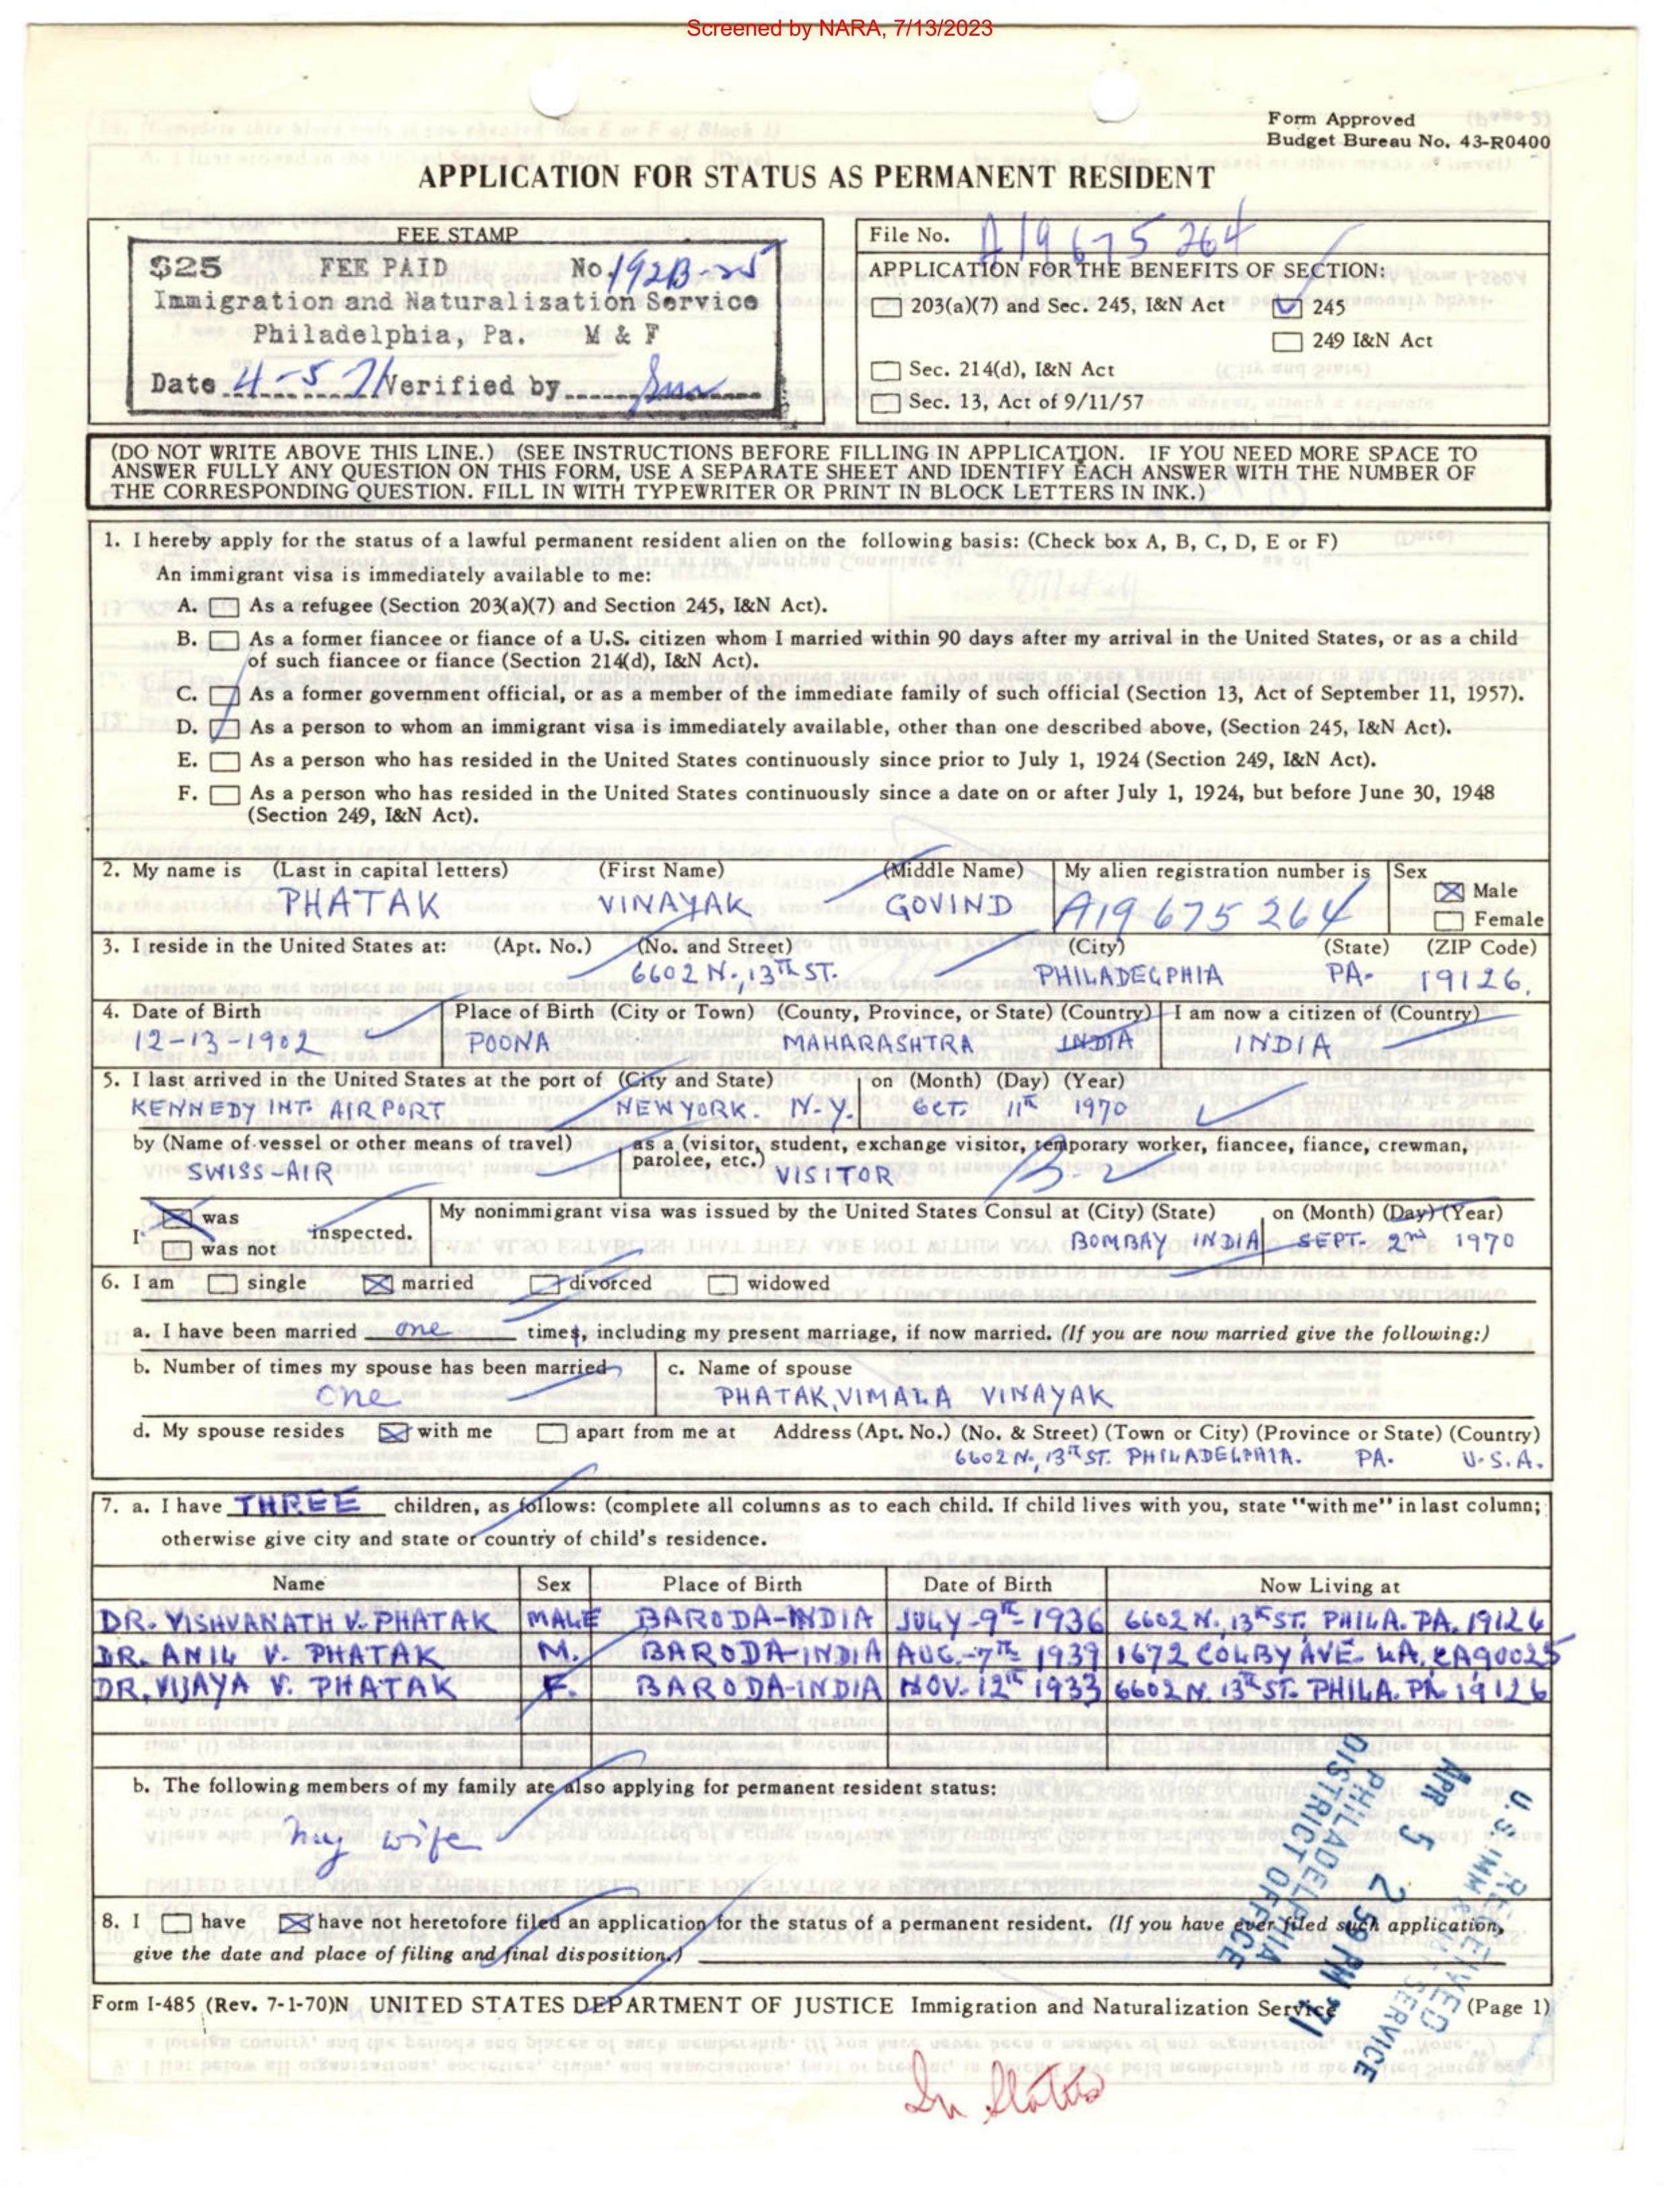 Screened by NARA, 7/13/2023
Form Approved
Budget Bureau No. 43-R0400
APPLICATION FOR STATUS AS PERMANENT RESIDENT
FEE STAMP
$25 FEE PAID No. 192B-25
Immigration and Naturalization Service
Philadelphia, Pa. M & F
Date 4-5 71 Verified by
File No. A19 675 264
APPLICATION FOR THE BENEFITS OF SECTION:
203(a)(7) and Sec. 245, I&N Act 245
249 I&N Act
Sec. 214(d), I&N Act
Sec. 13, Act of 9/11/57
(DO NOT WRITE ABOVE THIS LINE.) (SEE INSTRUCTIONS BEFORE FILLING IN APPLICATION. IF YOU NEED MORE SPACE TO
ANSWER FULLY ANY QUESTION ON THIS FORM, USE A SEPARATE SHEET AND IDENTIFY EACH ANSWER WITH THE NUMBER OF
THE CORRESPONDING QUESTION. FILL IN WITH TYPEWRITER OR PRINT IN BLOCK LETTERS IN INK.)
1. I hereby apply for the status of a lawful permanent resident alien on the following basis: (Check box A, B, C, D, E or F)
An immigrant visa is immediately available to me:
A. As a refugee (Section 203(a)(7) and Section 245, I&N Act).
B. As a former fiancee or fiance of a U.S. citizen whom I married within 90 days after my arrival in the United States, or as a child
of such fiancee or fiance (Section 214(d), I&N Act).
C. As a former government official, or as a member of the immediate family of such official (Section 13, Act of September 11, 1957).
D. As a person to whom an immigrant visa is immediately available, other than one described above, (Section 245, I&N Act).
E. As a person who has resided in the United States continuously since prior to July 1, 1924 (Section 249, I&N Act).
F. As a person who has resided in the United States continuously since a date on or after July 1, 1924, but before June 30, 1948
(Section 249, I&N Act).
2. My name is (Last in capital letters) (First Name) (Middle Name) My alien registration number is Sex
PHATAK VINAYAK GOVIND A19 675 264 Male
Female
3. I reside in the United States at: (Apt. No.) (No. and Street) (City) (State) (ZIP Code)
6602 N., 13TH ST. PHILADELPHIA PA. 19126.
4. Date of Birth Place of Birth (City or Town) (County, Province, or State) (Country) I am now a citizen of (Country)
12-13-1902 POONA MAHARASHTRA INDIA INDIA
5. I last arrived in the United States at the port of (City and State) on (Month) (Day) (Year)
KENNEDY INT. AIRPORT NEW YORK. N.Y. OCT. 11TH 1970
by (Name of vessel or other means of travel) as a (visitor, student, exchange visitor, temporary worker, fiancee, fiance, crewman,
parolee, etc.)
SWISS-AIR VISITOR B-2
I was inspected. My nonimmigrant visa was issued by the United States Consul at (City) (State) on (Month) (Day) (Year)
was not BOMBAY INDIA SEPT. 2nd 1970
6. I am single married divorced widowed
a. I have been married one times, including my present marriage, if now married. (If you are now married give the following:)
b. Number of times my spouse has been married c. Name of spouse
One PHATAK, VIMALA VINAYAK
d. My spouse resides with me apart from me at Address (Apt. No.) (No. & Street) (Town or City) (Province or State) (Country)
6602 N., 13TH ST. PHILADELPHIA. PA. U.S.A.
7. a. I have THREE children, as follows: (complete all columns as to each child. If child lives with you, state "with me" in last column;
otherwise give city and state or country of child's residence.
Name Sex Place of Birth Date of Birth Now Living at
DR. VISHVANATH V. PHATAK MALE BARODA-INDIA JULY-9TH 1936 6602 N., 13TH ST, PHILA. PA. 19126
DR. ANIL V. PHATAK M. BARODA-INDIA AUG.-7TH 1939 1672 COLBY AVE. LA, CA90025
DR. VIJAYA V. PHATAK F. BARODA-INDIA NOV. 12TH 1933 6602 N. 13TH ST. PHILA. PA 19126
b. The following members of my family are also applying for permanent resident status:
My wife
RECEIVED
U.S. IMM & NAT. SERVICE
APR 5 2 59 PM '71
PHILADELPHIA
DISTRICT OFFICE
8. I have have not heretofore filed an application for the status of a permanent resident. (If you have ever filed such application,
give the date and place of filing and final disposition.)
Form I-485 (Rev. 7-1-70)N UNITED STATES DEPARTMENT OF JUSTICE Immigration and Naturalization Service (Page 1)
In Status